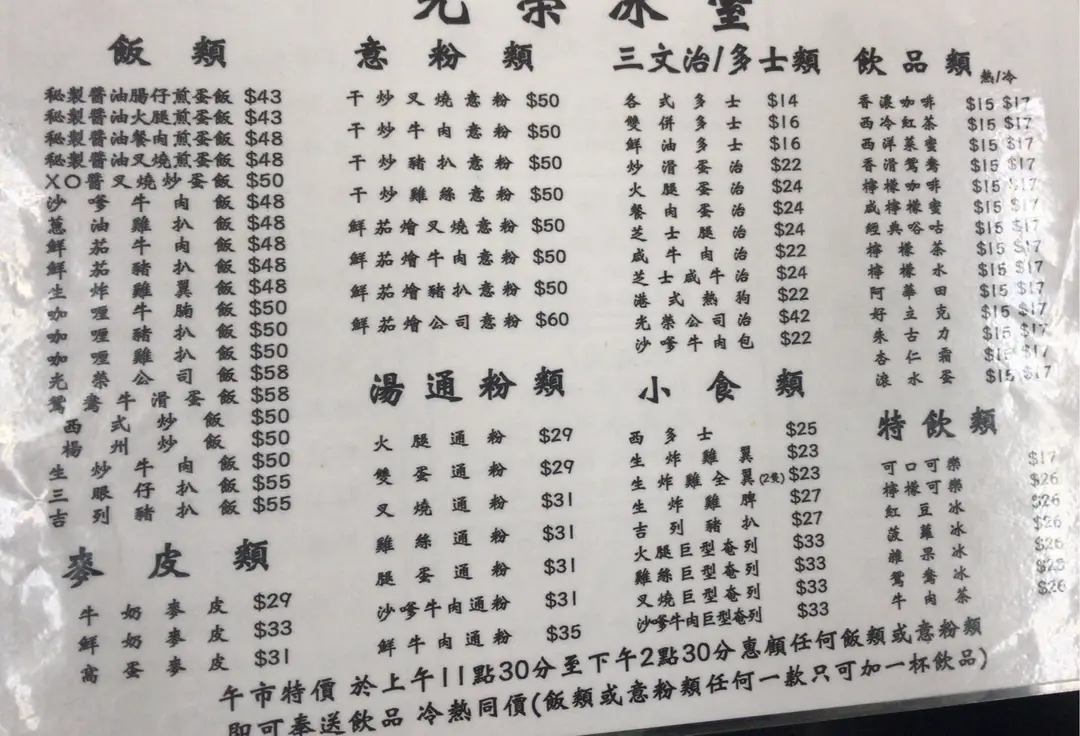 光榮冰室
飯類
秘製醬油腸仔煎蛋飯 $43
秘製醬油火腿煎蛋飯 $43
秘製醬油餐肉煎蛋飯 $48
秘製醬油叉燒煎蛋飯 $48
XO醬叉燒炒蛋飯 $50
沙嗲牛肉飯 $48
蔥油雞扒飯 $48
鮮茄牛肉飯 $48
鮮茄豬扒飯 $48
生炸雞翼飯 $48
咖喱牛腩飯 $50
咖喱豬扒飯 $50
咖喱雞扒飯 $50
光榮公司飯 $58
鴛鴦牛滑蛋飯 $58
西式炒飯 $50
楊州炒飯 $50
生炒牛肉飯 $50
三眼仔扒飯 $55
吉列豬扒飯 $55
麥皮類
牛奶麥皮 $29
鮮奶麥皮 $33
窩蛋麥皮 $31
意粉類
干炒叉燒意粉 $50
干炒牛肉意粉 $50
干炒豬扒意粉 $50
干炒雞絲意粉 $50
鮮茄燴叉燒意粉 $50
鮮茄燴牛肉意粉 $50
鮮茄燴豬扒意粉 $50
鮮茄燴公司意粉 $60
湯通粉類
火腿通粉 $29
雙蛋通粉 $29
叉燒通粉 $31
雞絲通粉 $31
腿蛋通粉 $31
沙嗲牛肉通粉 $31
鮮牛肉通粉 $35
三文治/多士類
各式多士 $14
雙併多士 $16
鮮油多士 $16
炒滑蛋治 $22
火腿蛋治 $24
餐肉蛋治 $24
芝士腿治 $24
咸牛肉治 $22
芝士咸牛治 $24
港式熱狗 $22
光榮公司治 $42
沙嗲牛肉包 $22
小食類
西多士 $25
生炸雞翼 $23
生炸雞全翼(2隻) $23
生炸雞脾 $27
吉列豬扒 $27
火腿巨型奄列 $33
雞絲巨型奄列 $33
叉燒巨型奄列 $33
沙嗲牛肉巨型奄列 $33
飲品類 熱/冷
香濃咖啡 $15 $17
西冷紅茶 $15 $17
西洋菜蜜 $15 $17
香滑鴛鴦 $15 $17
檸檬咖啡 $15 $17
咸檸檬蜜 $15 $17
經典唂咕 $15 $17
檸檬茶 $15 $17
檸檬水 $15 $17
阿華田 $15 $17
好立克 $15 $17
朱古力 $15 $17
杏仁霜 $15 $17
滾水蛋 $15 $17
特飲類
可口可樂 $17
檸檬可樂 $26
紅豆冰 $26
菠蘿冰 $26
雜果冰 $26
鴛鴦冰
牛肉茶 $26
午市特價 於上午11點30分至下午2點30分惠顧任何飯類或意粉類
即可奉送飲品 冷熱同價(飯類或意粉類任何一款只可加一杯飲品)